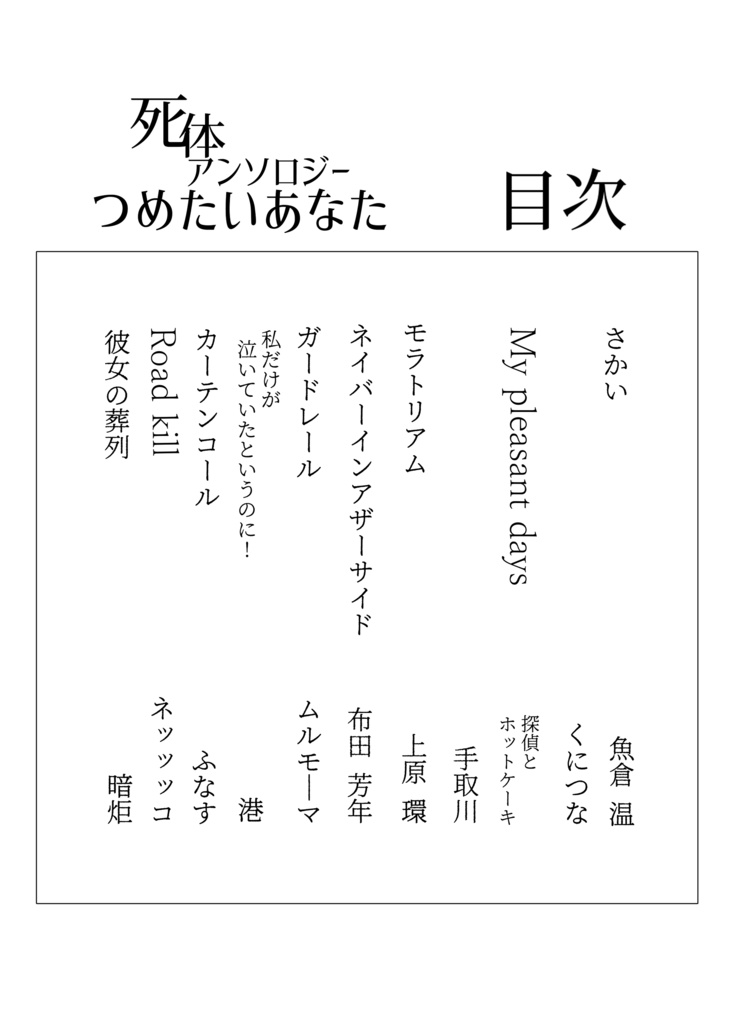 死体
アンソロジー
つめたいあなた
目次
さかい
魚倉 温
くにつな
My pleasant days
探偵と
ホットケーキ
手取川
モラトリアム
上原 環
ネイバーインアザーサイド
布田 芳年
ガードレール
ムルモーマ
私だけが
泣いていたというのに！
港
カーテンコール
ふなす
Road kill
ネッッッコ
彼女の葬列
暗炬